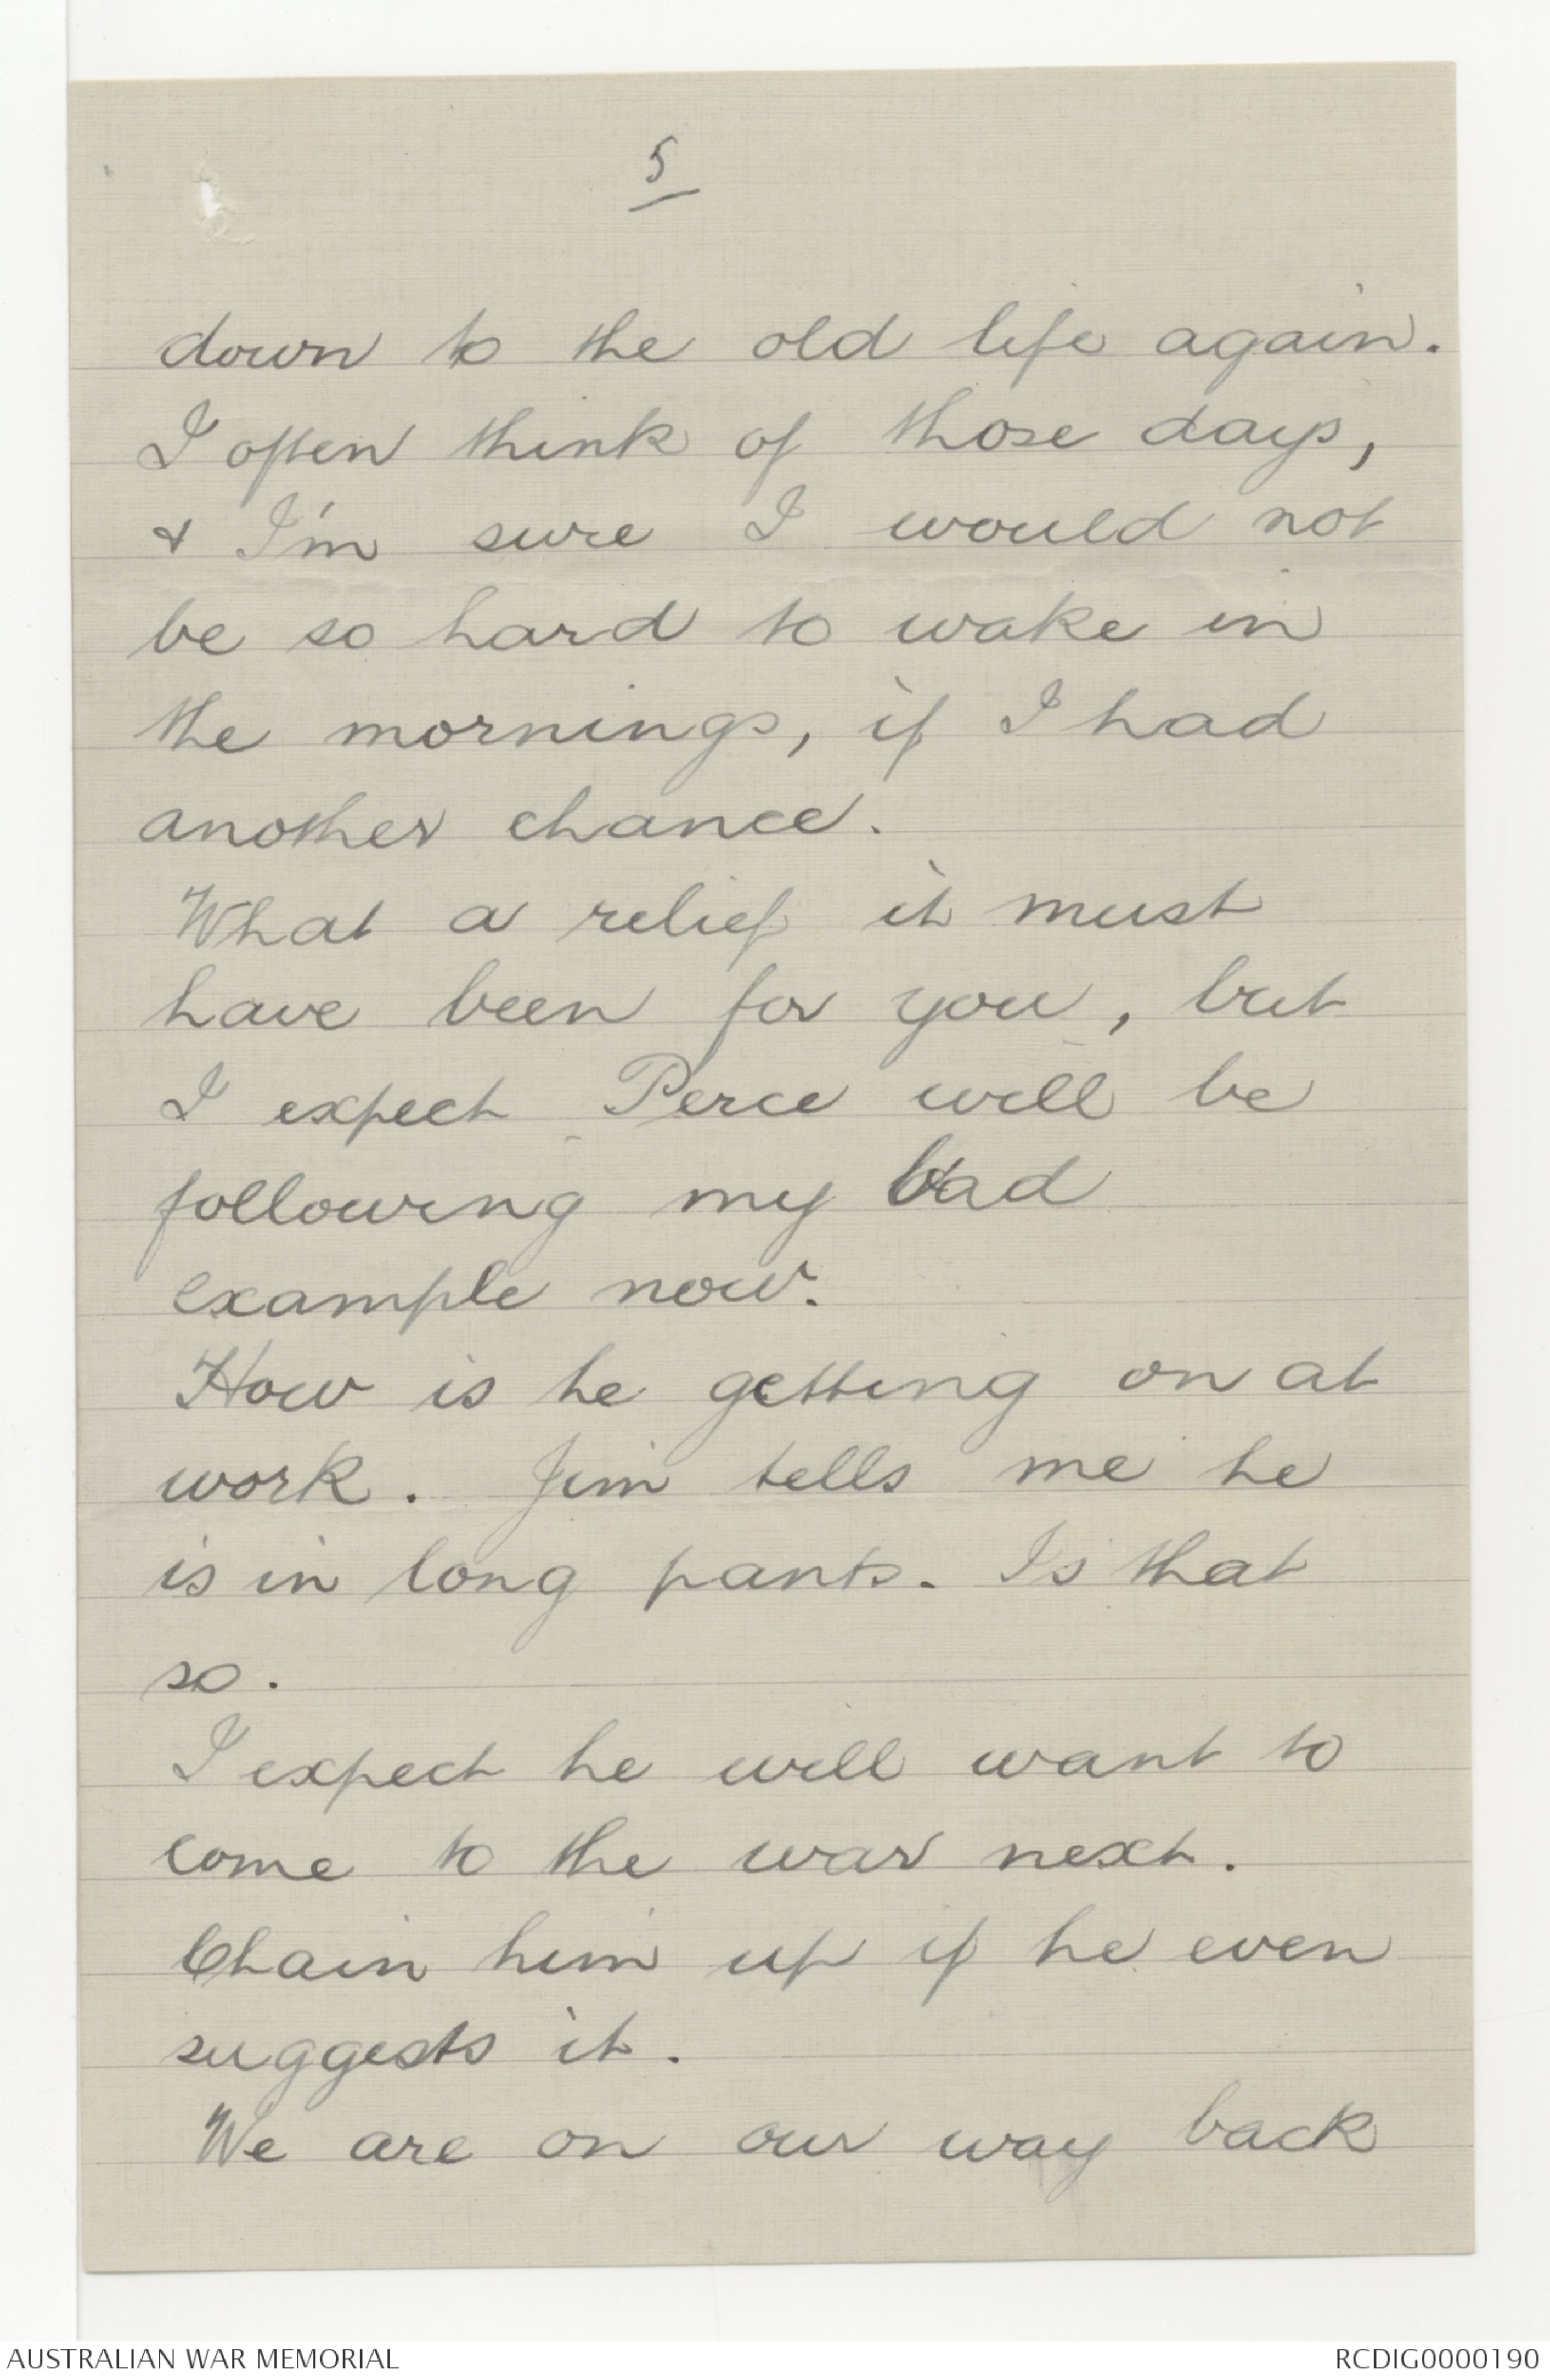 5
down to the old life again.
I often think of those days,
& I'm sure I would not
be so hard to wake in
the mornings, if I had
another chance.
What a relief it must
have been for you, but
I expect Perce will be
following my bad
example now.
How is he getting on at
work. Jim tells me he
is in long pants. Is that
so.
I expect he will want to
come to the war next.
Chain him up if he even
suggests it.
We are on our way back
AUSTRALIAN WAR MEMORIAL
RCDIG0000190